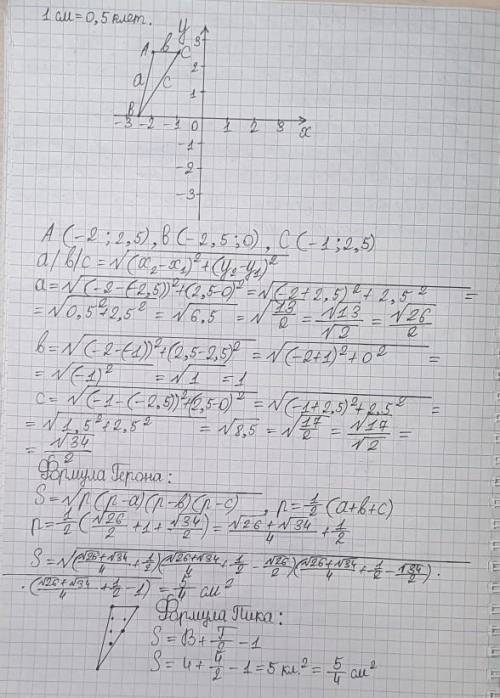 1 см=0,5 клет.
y
A b C
3
a c
2
1
B
-3 -2 -1 0 1 2 3 x
-1
-2
-3
A (-2 ; 2,5) , B (-2,5 ; 0) , C (-1 ; 2,5)
a/b/c = √((x₂-x₁)²+(y₂-y₁)²)
a = √((-2-(-2,5))²+(2,5-0)²) = √((-2+2,5)²+2,5²) =
= √(0,5²+2,5²) = √6,5 = √(13/2) = √13/√2 = √26/2
b = √((-2-(-1))²+(2,5-2,5)²) = √((-2+1)²+0²) =
= √((-1)²) = √1 = 1
c = √((-1-(-2,5))²+(2,5-0)²) = √((-1+2,5)²+2,5²) =
= √(1,5²+2,5²) = √8,5 = √(17/2) = √17/√2 =
= √34/2
Формула Герона:
S = √(p(p-a)(p-b)(p-c)) , p = 1/2 (a+b+c)
p = 1/2 (√26/2 + 1 + √34/2) = (√26+√34)/4 + 1/2
S = √(((√26+√34)/4 + 1/2)((√26+√34)/4 + 1/2 - √26/2)((√26+√34)/4 + 1/2 - √34/2) ·
· ((√26+√34)/4 + 1/2 - 1)) = 5/4 см²
Формула Пика:
S = B + Г/2 - 1
S = 4 + 4/2 - 1 = 5 кл.² = 5/4 см²